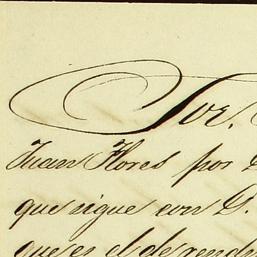 Sor.
Juan Flores por
que sigue con D.
que es el de rendi